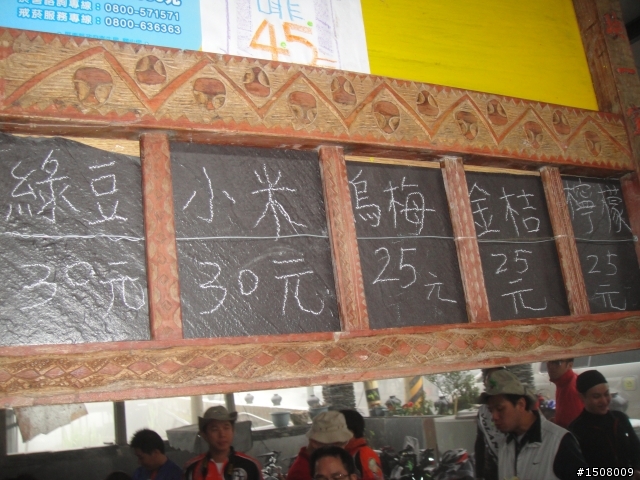 0800-571571
戒菸服務專線：0800-636363
45
綠豆
30元
小米
30元
烏梅
25元
金桔
25元
檸檬
25元
#1508009